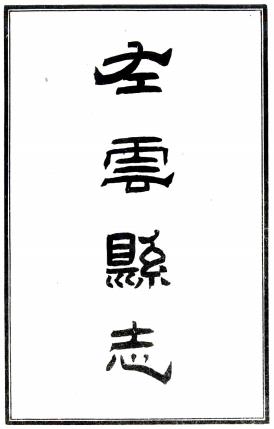 左雲縣志